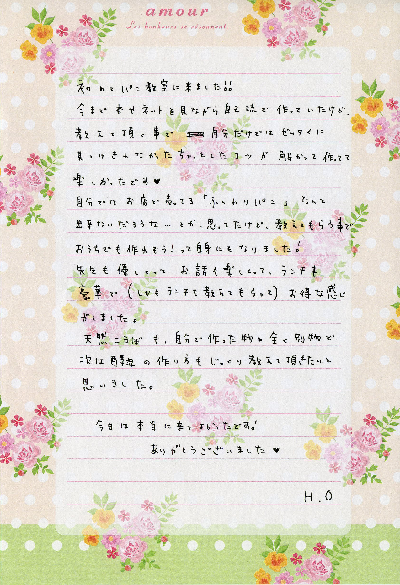 amour
Les bonheurs se résument
初めてパン教室に来ました!!
今まで本やネットを見ながら自己流で作っていたけど、
教えて頂く事で 自分だけでは ぜったいに
見つけきれなかったちょっとしたコツが 解かって 作ってて
楽しかったです♥
自分では お店で売ってる「ふんわりパン」なんて
出来ないだろうな…とか、思ってたけど、教えてもらう事で
おうちでも作れそう!って自身にもなりました!
先生も優しくって お話も楽しくって、ランチも
豪華で(しかもランチも教えてもらって)お得な感じ
がしました。
天然こうぼ も、自分で作った物と全く別物で
次は酵母の作り方もじっくり教えて頂きたいと
思いました。
今日は本当に来てよかったです!
ありがとうございました♥
H.O